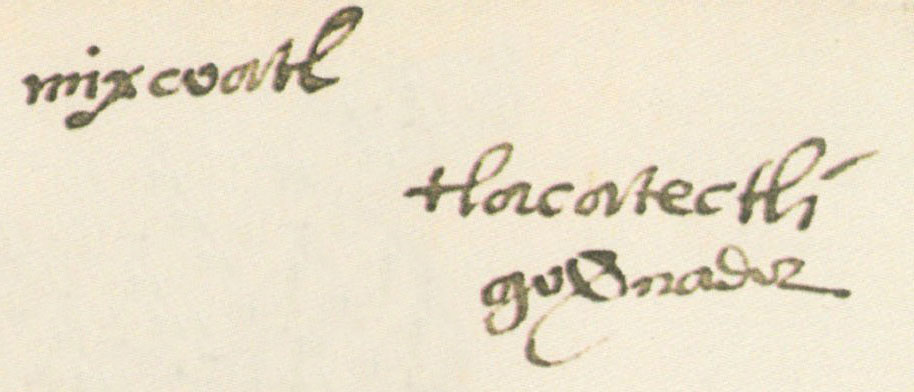 mixcoatl
tlacatectli
gouernador